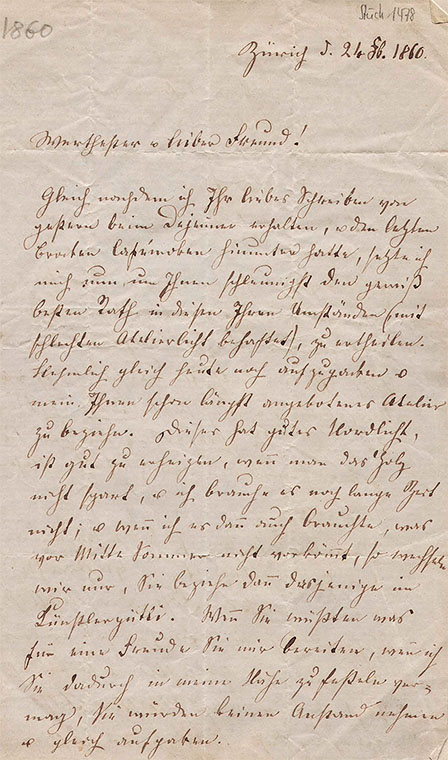 1860
Stück 1478
Zürich d. 24 Fb. 1860.
Werthester u lieber Freund!
Gleich nachdem ich Ihr liebes Schreiben von
gestern beim Dejeuner erhalten, u den letzten
Brocken hinunter hatte, setzte ich
mich nun, um Ihnen schleunigst den gewiß
besten Rath in diesen Ihren Umständen (mit
schlechten Atelierlicht behaftet), zu ertheilen.
Nehmlich gleich heute noch aufzupacken u
mein, Ihnen schon längst angebotenes Atelier
zu beziehn. Dieses hat gutes Nordlicht,
ist gut zu erheizen, wenn man das Holz
nicht spart, u ich brauche es noch lange Zeit
nicht; u wenn ich es dann auch brauchte, was
vor Mitte Sommer nicht vorkömmt, so wechseln
wir nur, Sie beziehe dann dasjenige im
Künstlergütli. Wenn Sie wüßten was
für eine Freude Sie mir bereiten, wenn ich
Sie dadurch in meine Nähe zu feßeln ver-
mag, Sie würden keinen Anstand nehmen
u gleich aufpacken.